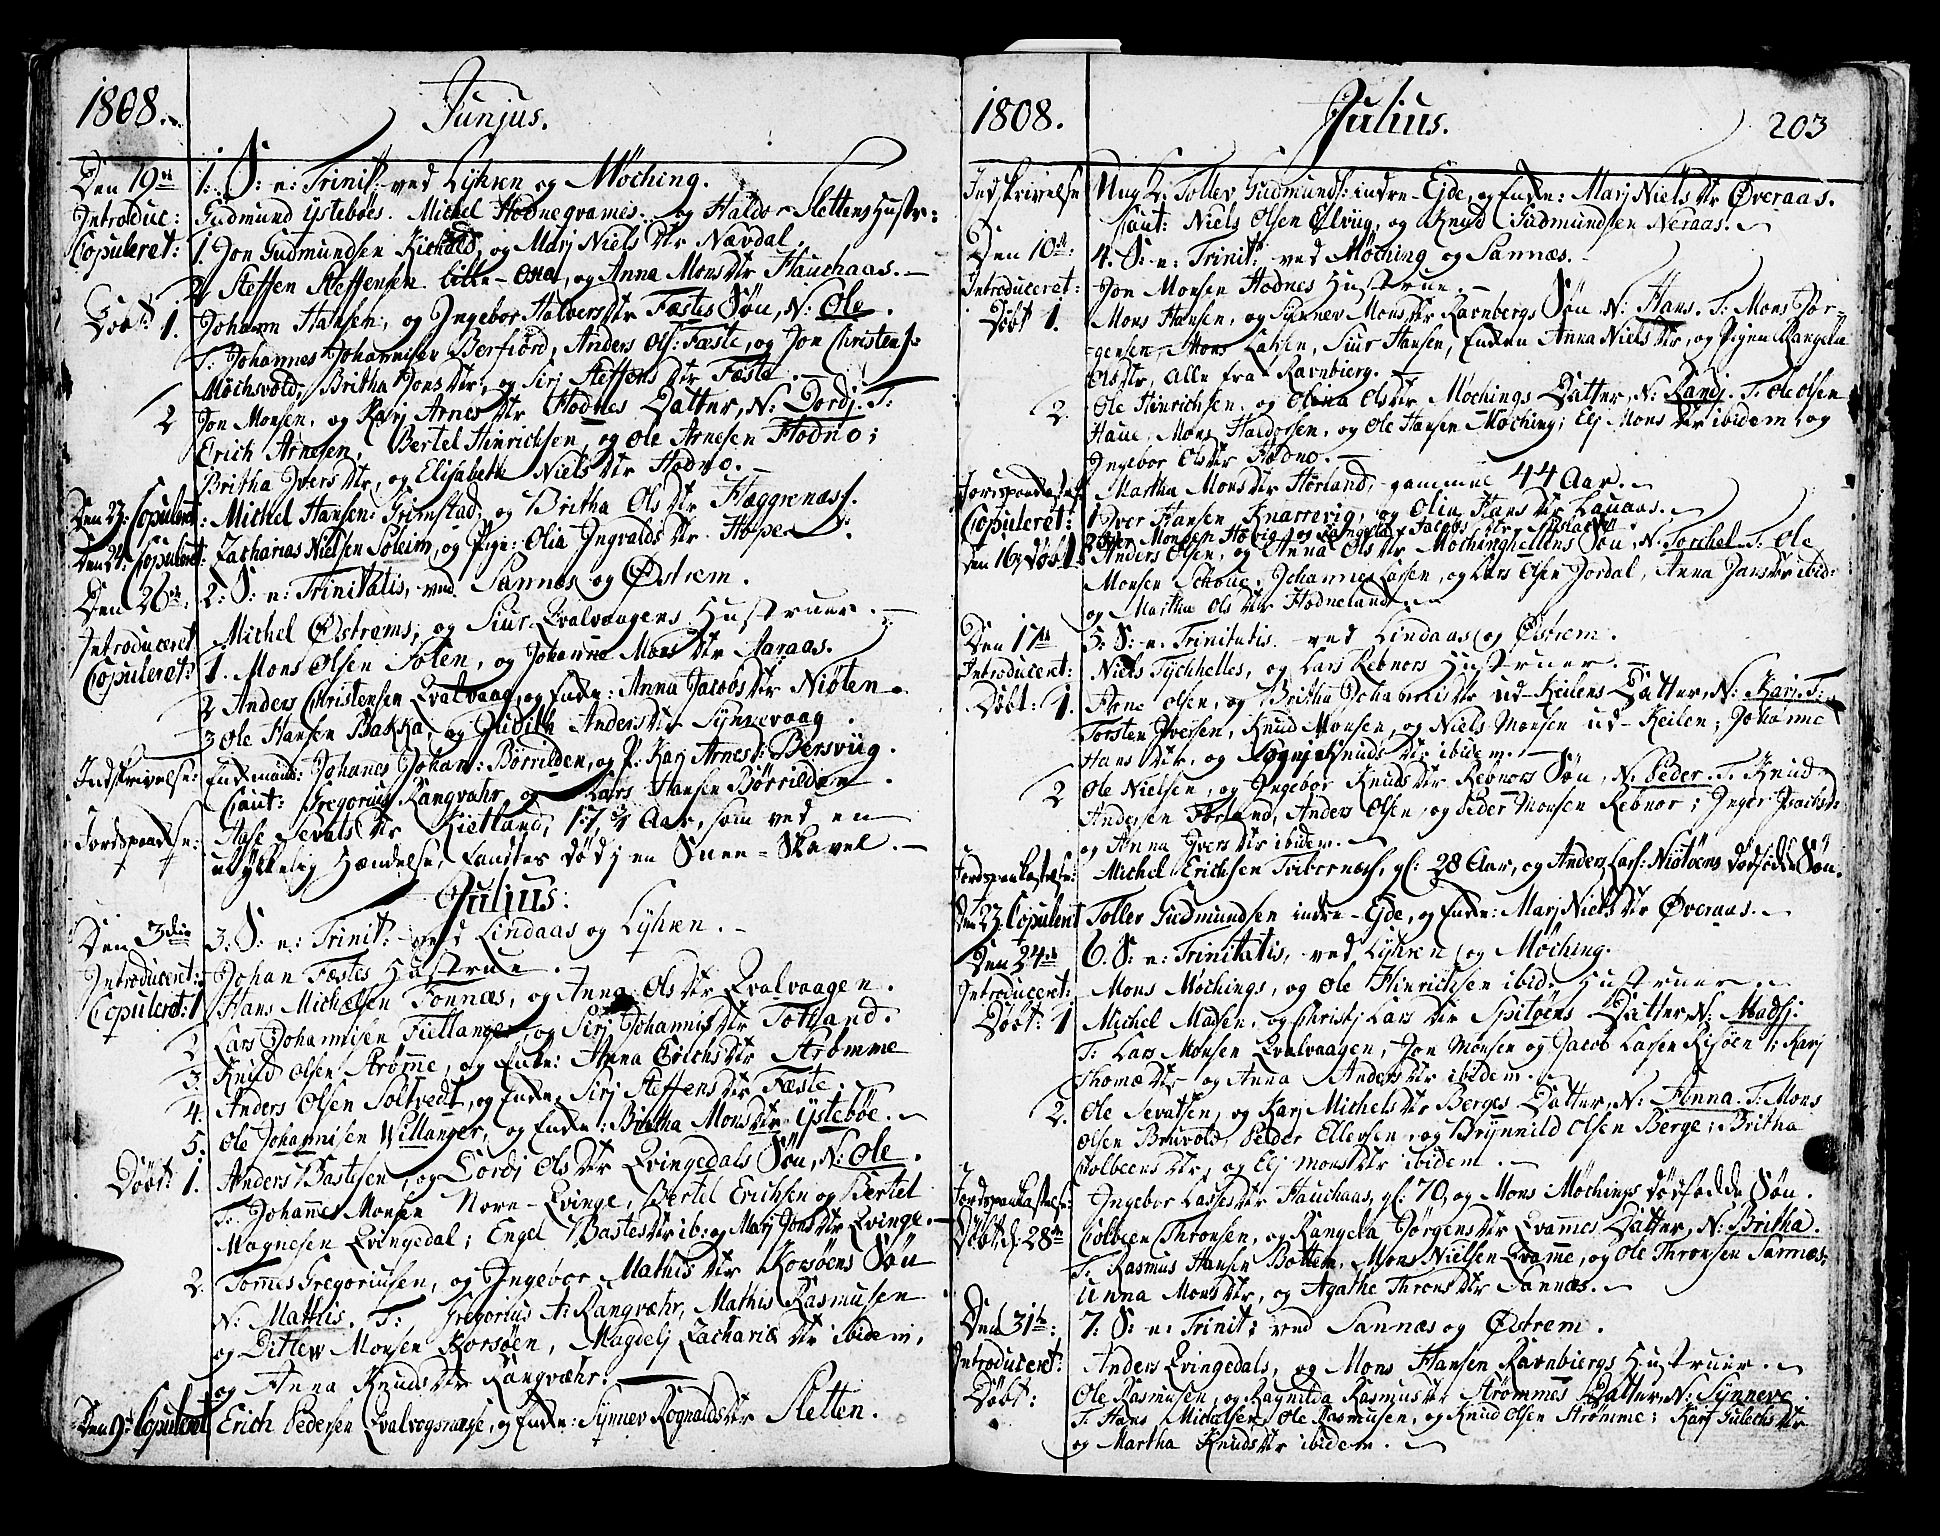 1808. Junjus.
Den 19de 1. S: e: Trinit: ved Lyhren og Møching.
Introduc: Gudmund Ystebøes. Michel Hodneqvames og Haldor Slettens Hustr:
Copuleret: 1. Jon Gudmundsen Kichold, og Marj Niels Dtr Nævdal.
2 Steffen Steffensen Lille-Ona, og Anna Mons Dtr Hauchaas.
Døbt: 1. Johann Hansen, og Ingebor Halvers Dtr Fæstes Søn, N: Ole.
T. Johannes Johannisen Berfiord, Anders Ols: Fæste, og Jon Christens:
Mochsvold, Britha Jons Dtr, og Sirj Steffens Dtr Fæste.
2 Jon Monsen, og Karj Arnes Dtr Hodnes Datter, N: Dordj. T:
Erich Arnesen, Bertel Hinrichsen, og Ole Arnesen Hodno;
Britha Ivers Dtr, og Elisabeth Niels Dtr Hodno.
Den 23: Copuleret: Michel Hansen Grimstad, og Britha Ols Dtr Hæggrenæss.
Den 24: Copuleret: Zacharias Nielsen Soleim, og Pige: Olia Ingvalds Dtr Hope.
Den 26de 2. S: e: Trinitatis, ved Sannæs og Østrem.
Introduceret Michel Østrems, og Siur Qvalvaagens Hustruer.
Copuleret: 1. Mons Olsen Solen, og Johanne Mons Dtr Aaraas.
2 Anders Christensen Qvalvaag, og Enke: Anna Jacobs Dtr Niøten.
3 Ole Hansen Bakka, og Judith Anders Dtr Synnevaag.
Indskrivelse: Enkemand: Johanes Johan: Børrilden, og P. Karj Arnes D: Bersviig.
Caut: Gregorius Rangvahr og Lars Hansen Børrilden.
Jordspaakastelse: Aase Sevals Dtr Kietland, 17 3/4 Aar, som ved en
ulykkelig Hændelse, fandtes død j en Snee-Skavel.
Julius:
Den 3die 3. S: e: Trinit: ved Lindaas og Lyhren.
Introduceret: Johan Fæstes Hustrue.
Copuleret: 1 Hans Michelsen Fonnæs, og Anna Ols Dtr Qvalvaagen.
2 Lars Johannisen Fiellanger, og Sirj Johannis Dtr Totland.
3. Knud Olsen Strømme, og Enke: Anna Erichs Dtr Strømme
4. Anders Olsen Soltvedt, og Enke Sirj Steffens Dtr Fæste.
5. Ole Johannisen Willanger, og Enke: Britha Mons Dtr Ystebøe.
Døbt: 1. Anders Bastesen, og Dordj Ols Dtr Qvingedals Søn, N: Ole.
T: Johannes Monsen Nore-Qvinge, Bertel Erichsen og Bertel
Magnesen Qvingedal; Engel Bastes Dtr ib: og Marj Jons Dtr Qvinge.
2. Tomes Gregoriusen, og Ingebor Mathis Dtr Korsøens Søn
N: Mathis. T: Gregorius A: Rangvæhr, Mathis Rasmusen
og Ditlew Monsen Korsøen, Magdelj Zachariæ Dtr ibidem,
og Anna Knuds Dtr Rangvæhr.
Den 9: Copuleret Erich Pedersen Qvalvogsnæse, og Enke: Synnev Rognalds Dtr Sletten.
1808. Julius. 203
Indskrivelse Ung K: Tollev Gudmunds: indre Ejde, og Enke: Marj Niels Dtr Øveraas.
Caut: Niels Olsen Ølvig, og Knud Gudmundsen Neraas.
Den 10de: 4. S: e: Trinit: ved Møching og Sannæs.
Introduceret: Jon Monsen Hodnes Hustrue.
Døbt 1. Mons Hansen, og Sunnev Mons Dtr Ravnbergs Søn, N: Hans. T. Mons Jør-
gensen, Mons Larsen, Siur Hansen, Enken Anna Niels Dtr, og Pigen Rangela
Ols Dtr, alle fra Ravnbierg.
2. Ole Hinrichsen, og Olina Ols Dtr Møchings Datter, N: Randj. T. Ole Olsen
Haue, Mons Haldorsen, og Ole Hansen Møching; Elj Mons Dtr ibidem, og
Ingebor Ols Dtr Fodno.
Jordspaakastelse Martha Mons Dtr Hørland, gammel 44 Aar.
Copuleret: 1 Iver Hansen Knarrevig, og Olia Hans Dtr Lauaas.
2 Iver Monsen Høvig, og Rangela Jacobs Dtr
Den 16: Døbt 1. Anders Olsen, og Anna Ols Dtr Møchinghellens Søn, N. Torchel. T. Ole
Monsen Schoue, Johannes Larsen, og Lars Olsen Jordal, Anna Jans Dtr ibid:
og Martha Ols Dtr Hodneland.
Den 17de 5. S: e: Trinitatis ved Lindaas og Østrem.
Introduceret: Niels Tychhelles, og Lars Rebnors Hustruer.
Døbt: 1. Arne Olsen, og Britha Johannis Dtr ud-Keilens Datter, N: Karj. T:
Torsten Iversen, Knud Monsen, og Niels Monsen ud-Keilen; Johanne
Hans Dtr, og Knuds Dtr ibidem.
2 Ole Nielsen, og Ingebor Knuds Dtr Rebnors Søn, N: Peder. T. Knud
Andersen Førland, Anders Olsen, og Peder Monsen Rebnor; Inger Isachsd:
og Anna Ivers Dtr ibidem.
Jordspaakastelse: Michel Erichsen Toibornæss, gl: 28 Aar, og Anders Lars: Niøtøens dødfødde Søn.
Den 23. Copuleret Tollev Gudmundsen indre-Ejde, og Enke: Marj Niels Dtr Øveraas.
Den 24de 6. S: e: Trinitatis, ved Lyhren og Møching.
Introduceret: Mons Møchings, og Ole Hinrichsen ibid: Hustruer.
Døbt: 1 Michel Madsen, og Christj Lars Dtr Spitøens Datter, N: Madsj.
T: Lars Monsen Qvalvaagen, Jon Monsen og Jacob Larsen Risøen; Karj
Thomæ Dtr og Anna Anders Dtr ibidem.
2. Ole Sevatsen, og Karj Michels Dtr Berges Datter, N: Anna. T. Mons
Olsen Bruvold, Peder Ellevsen, og Brynnild Olsen Berge; Britha
Colbeens Dtr, og Elj Mons Dtr ibidem.
Jordspaakastelse: Ingebor Lasses Dtr Hauchaas, gl: 70, og Mons Møchings dødfødde Søn.
Døbt d: 28de Colbeen Thronsen, og Rangela Jørgens Dtr Qvammes Datter, N: Britha.
T. Rasmus Hansen Botten, Mons Nielsen Qvamme, og Ole Thronsen Sannæs,
Unna Mons Dtr, og Agathe Throns Dtr Sannæs.
Den 31te: 7. S: e: Trinit: ved Sannæs og Østrem.
Introduceret: Anders Qvingedals, og Mons Hansen Ravnbiergs Hustruer.
Døbt: Ole Rasmusen, og Ragnilda Rasmus Dtr Strømmes Datter, N: Synneve.
T. Hans Michelsen, Ole Rasmusen, og Knud Olsen Strømme; Karj Gulachs Dtr
og Martha Knuds Dtr ibidem.